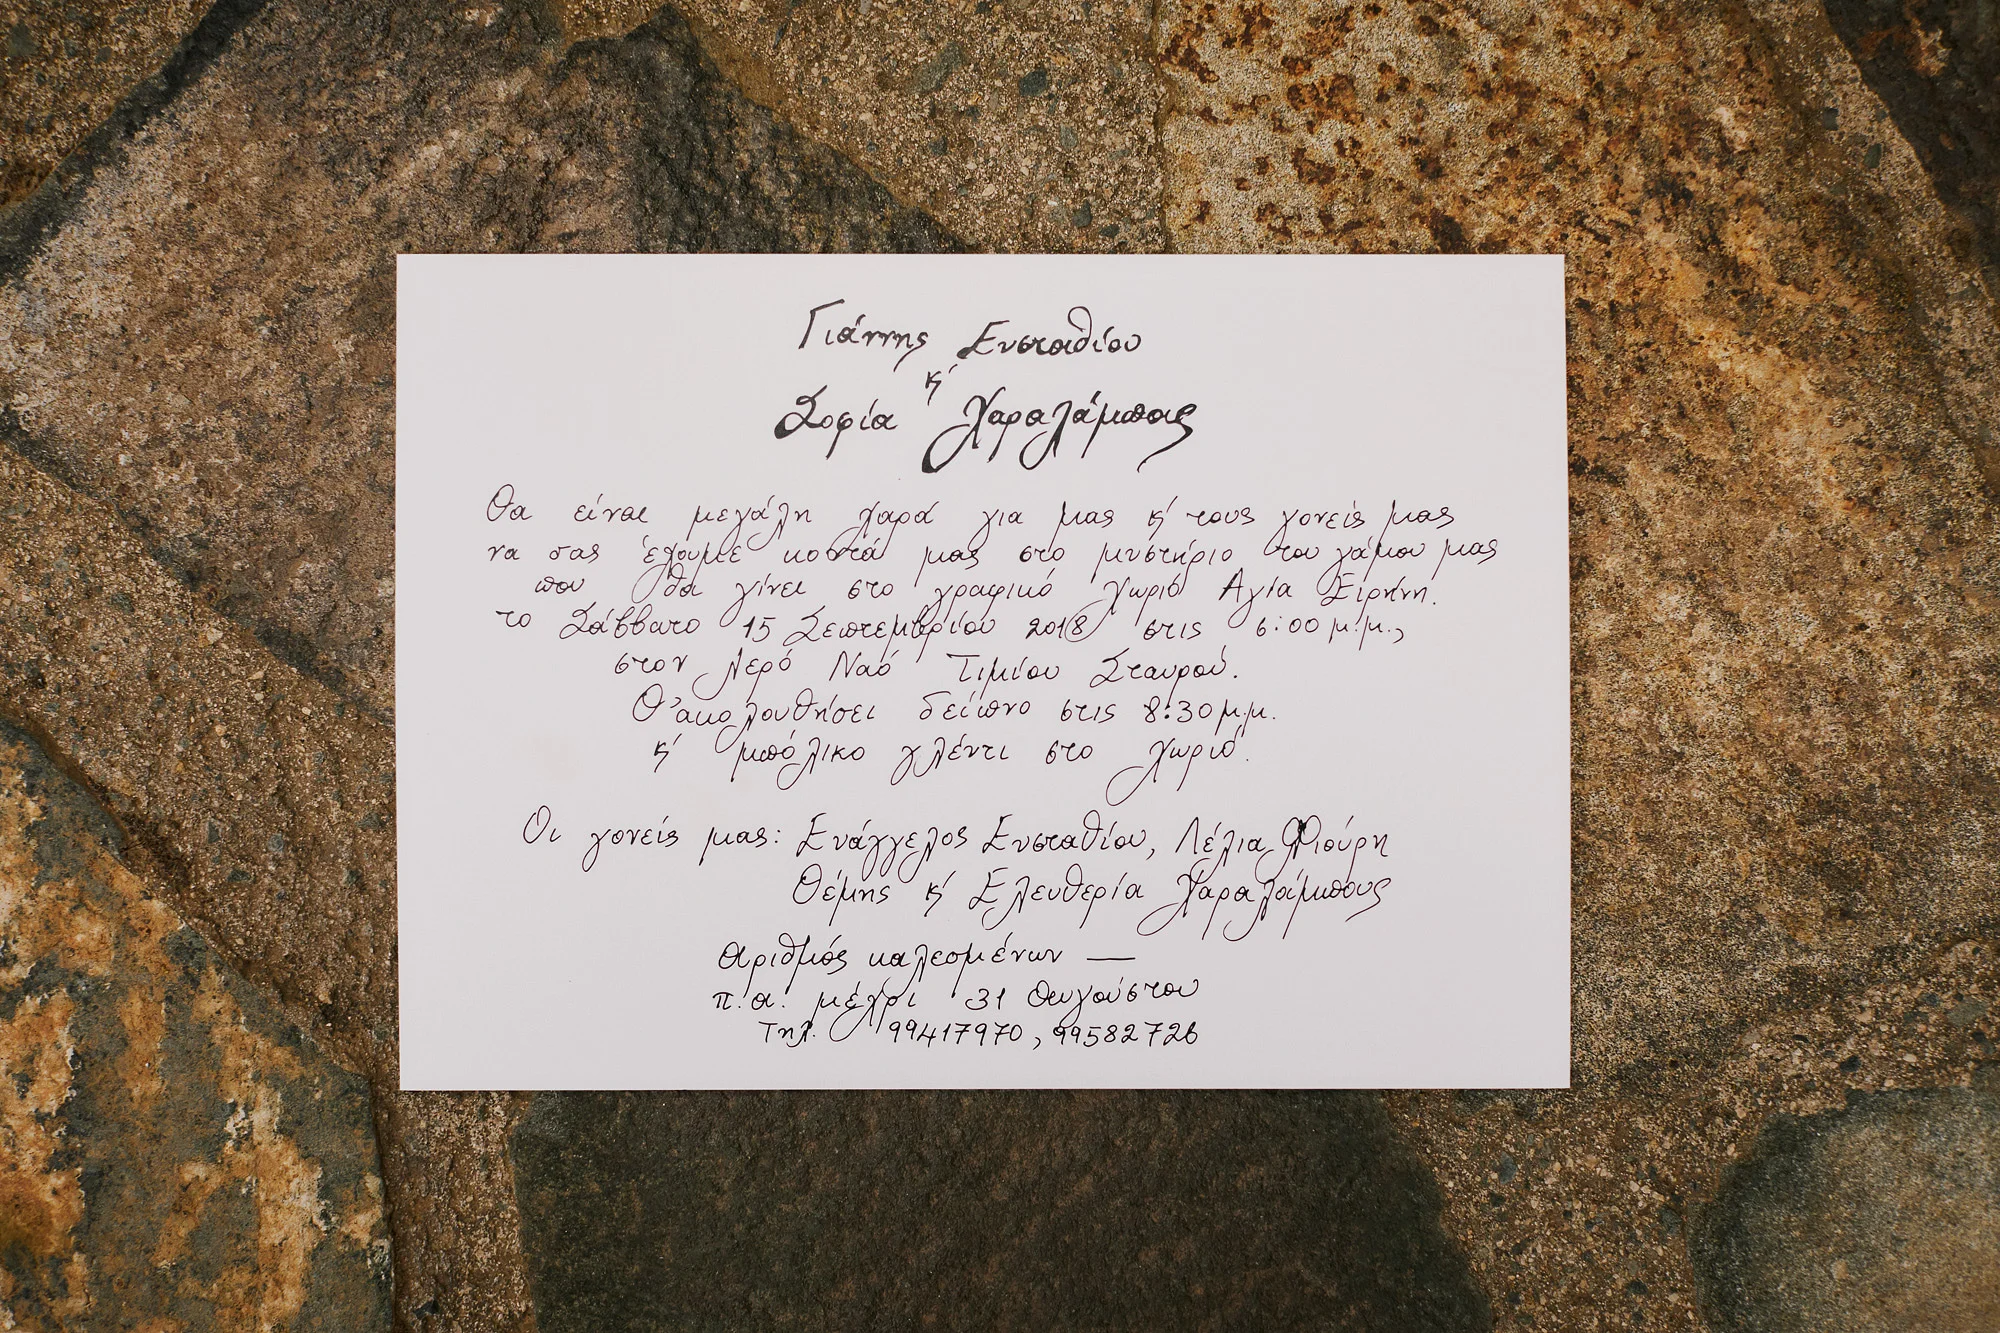 Γιάννης Ευσταθίου
κ'
Σοφία Χαραλάμπους
Θα είναι μεγάλη χαρά για μας κ' τους γονείς μας
να σας έχουμε κοντά μας στο μυστήριο του γάμου μας
που θα γίνει στο γραφικό χωριό Αγία Ειρήνη.
το Σάββατο 15 Σεπτεμβρίου 2018 στις 5:00 μ.μ.,
στον Ιερό Ναό Τιμίου Σταυρού.
Θ' ακολουθήσει δείπνο στις 8:30 μ.μ.
κ' μπόλικο γλέντι στο χωριό.
Οι γονείς μας: Ευάγγελος Ευσταθίου, Λέλια Φιούρη
Θέμης κ' Ελευθερία Χαραλάμπους
αριθμός καλεσμένων —
π.α. μέχρι 31 Αυγούστου
Τηλ. 99417970, 99582726